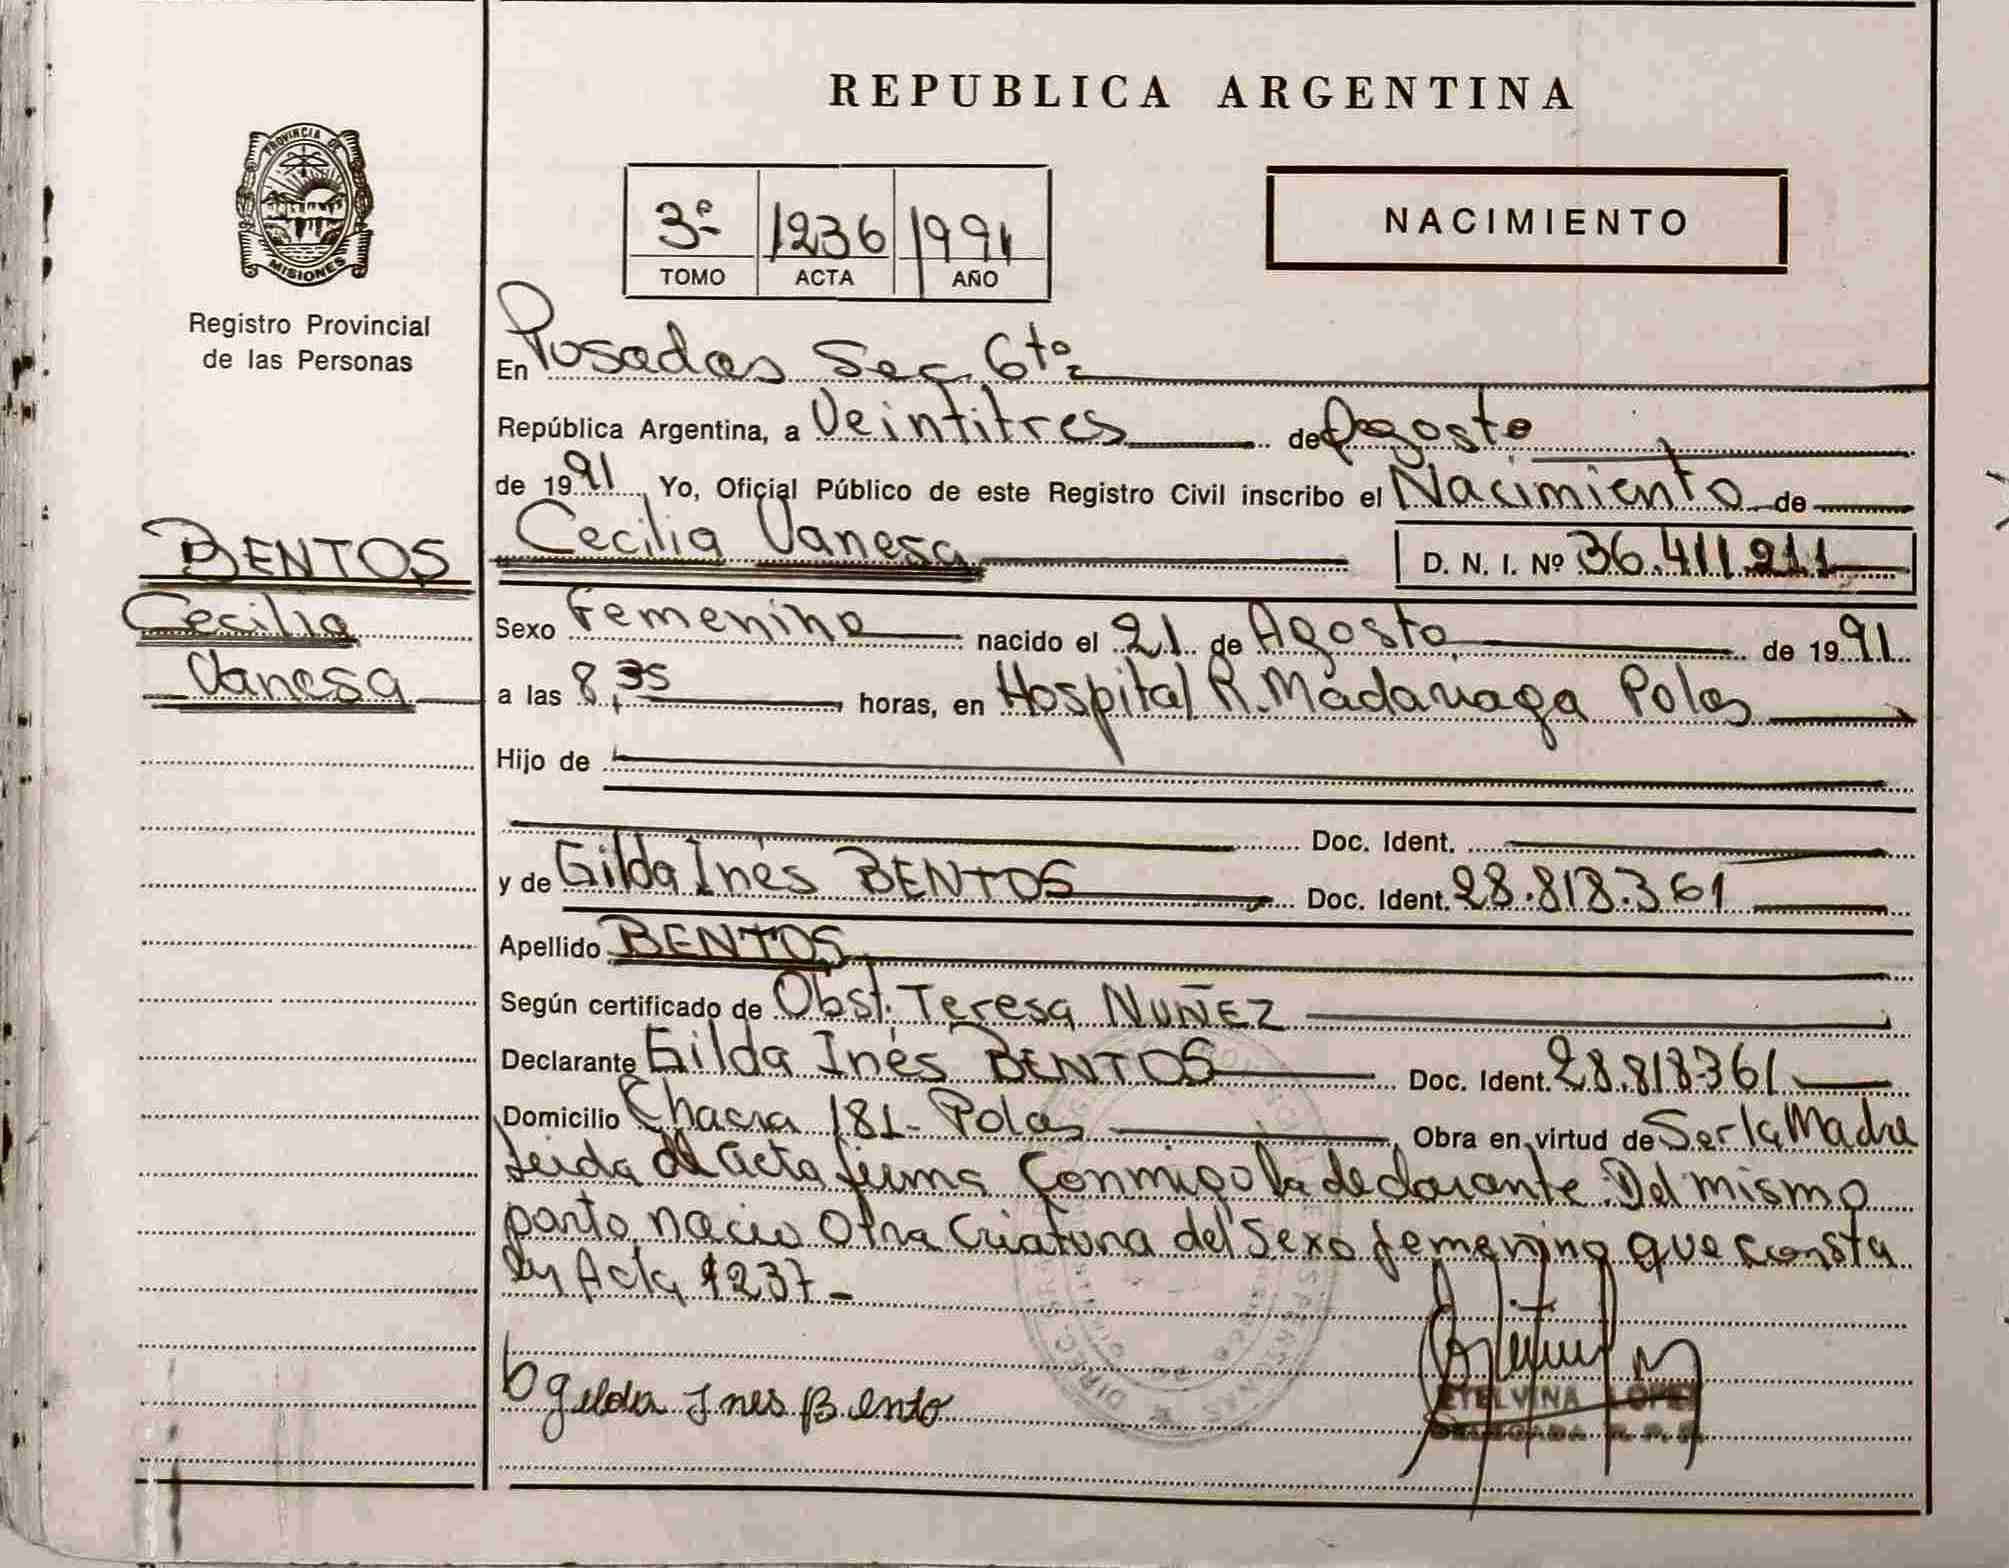 REPUBLICA ARGENTINA
PROVINCIA DE
MISIONES
Registro Provincial
de las Personas
3º 1236 1991
TOMO ACTA AÑO
NACIMIENTO
En Posadas Sec. 6ta
República Argentina, a Veintitres de Agosto
de 1991 Yo, Oficial Público de este Registro Civil inscribo el Nacimiento de
BENTOS
Cecilia
Vanesa
Cecilia Vanesa D. N. I. Nº 36.411.211
Sexo Femenino nacido el 21 de Agosto de 1991
a las 8,35 horas, en Hospital R. Madariaga Pdas
Hijo de
Doc. Ident.
y de Gilda Inés BENTOS Doc. Ident. 28.818.361
Apellido BENTOS
Según certificado de Obst. Teresa NUÑEZ
Declarante Gilda Inés BENTOS Doc. Ident. 28.818361
Domicilio Chacra 181- Pdas Obra en virtud de Ser la Madre
Leida el acta firma conmigo la declarante. Del mismo
parto nacio Otra Criatura del Sexo femenino que consta
en Acta 1237-
Gilda Ines Bento
ETELVINA LOPEZ
DELEGADA R. P. P.